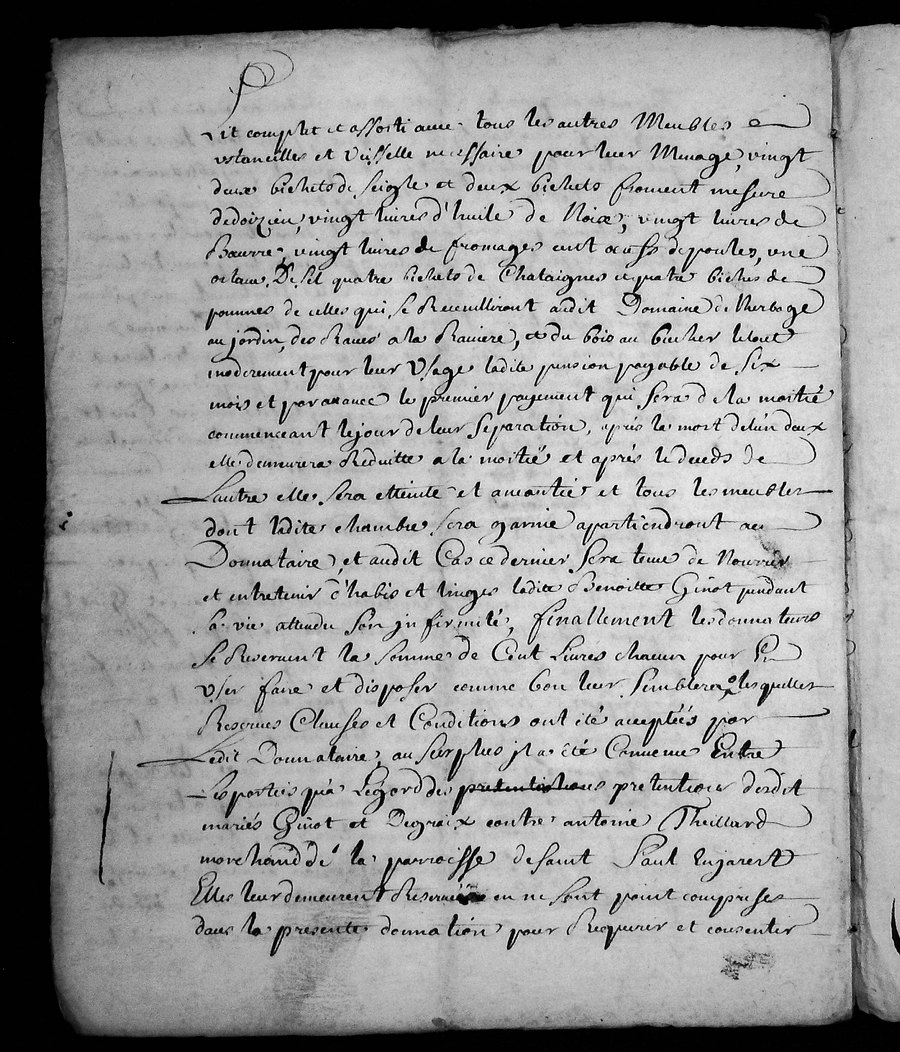 Lit complet et assorti avec tous les autres Meubles
ustancilles et Vaisselle necessaire pour leur Menage, vingt
deux bichets de seigle et deux bichets froment mesure
de doizieu, vingt livres d'huile de Noix, vingt livres de
Beurre, vingt livres de fromages cent œufs de poules, une
De sel quatre bichets de Chataignes et quatre bichets de
pommes de celles qui se Recueilliront audit Domaine de l'herbage
au jardin, des Raves a la Raviere, et du bois au bucher le tout
moderement pour leur Usage ladite pension payable de six
mois et par avance le premier payement qui sera de la moitié
commenceant le jour de leur separation, après la mort de l'un deux
elle demurera Reduitte a la moitié et après le deceds de
Lautre elle sera etteinte et aneantie et tous les meubles
dont ladite chambre sera garnie apartiendront au
Donnataire, et audit Cas ce dernier sera tenu de Nourrir
et entretenir d'habis et linges ladite Benoitte Ginot pendant
sa vie attendu son jnfirmité, finallement les donnateurs
se Reservent la somme de Cent Livres chacun pour En
User faire et disposer comme bon leur semblera, lesquelles
Reserves Clauses et Conditions ont été acceptées par
Ledit Donnataire, au surplus jl a été Convenu Entre
Les parties qu'a Légard des pretentions pretentions desdit
mariés Ginot et Degraix contre antoine Theillard
marchand de la parroisse de saint Paul Enjarest
Elles leur demeurent Reservées en ne sont point comprises
dans la presente donnation pour Requerir et consentir